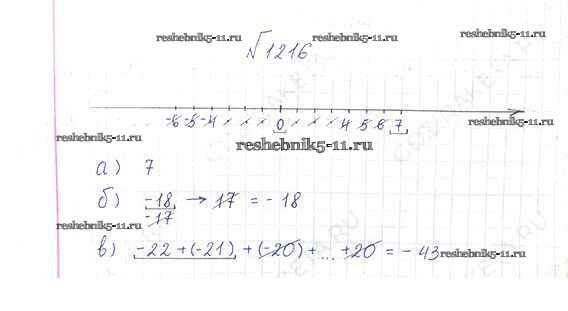 reshebnik5-11.ru reshebnik5-11.ru reshebnik5-11.ru
№1216
-6 -5 -4 0 4 5 6 7
reshebnik5-11.ru reshebnik5-11.ru
reshebnik5-11.ru
а) 7
б) -18, -17 → 17 = -18
reshebnik5-11.ru
в) -22 + (-21) + (-20) + ... + 20 = -43
reshebnik5-11.ru